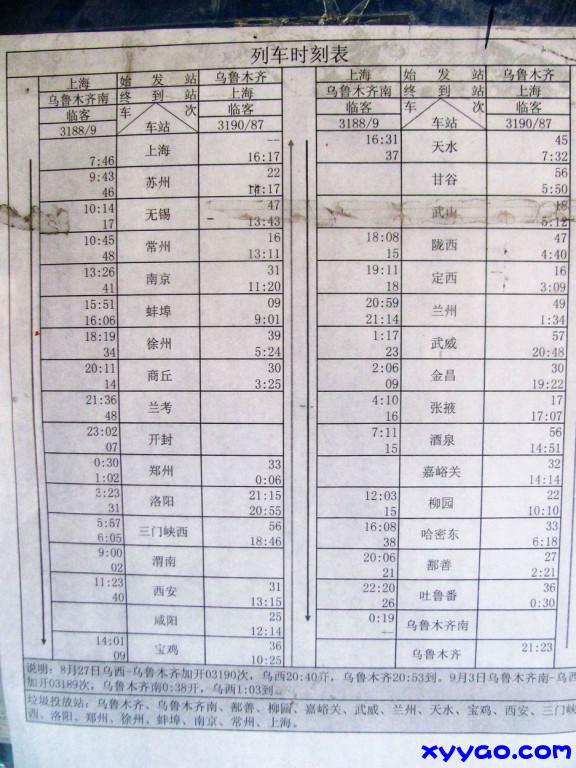 列车时刻表
上海 始发站 乌鲁木齐
乌鲁木齐南 终到站 上海
临客 车次 临客
3188/9 车站 3190/87
7:46 上海 --- 16:17
9:43 46 苏州 22 14:17
10:14 17 无锡 47 13:43
10:45 48 常州 16 13:11
13:26 41 南京 31 11:20
15:51 16:06 蚌埠 09 9:01
18:19 34 徐州 39 5:24
20:11 14 商丘 30 3:25
21:36 48 兰考
23:02 07 开封
0:30 1:02 郑州 33 0:06
3:23 31 洛阳 21:15 20:55
5:57 6:05 三门峡西 56 18:46
9:00 02 渭南
11:23 40 西安 31 13:15
咸阳 25 12:14
14:01 09 宝鸡 36 10:25
上海 始发站 乌鲁木齐
乌鲁木齐南 终到站 上海
临客 车次 临客
3188/9 车站 3190/87
16:31 37 天水 45 7:32
甘谷 56 5:50
武山 18 5:12
18:08 15 陇西 47 4:40
19:11 18 定西 16 3:09
20:59 21:14 兰州 49 1:34
1:17 23 武威 57 20:48
2:06 09 金昌 30 19:22
4:10 16 张掖 17 17:07
7:11 15 酒泉 56 14:51
嘉峪关 32 14:14
12:03 15 柳园 22 10:10
16:08 38 哈密东 33 6:18
20:06 21 鄯善 27 2:21
22:20 26 吐鲁番 36 0:30
0:19 --- 乌鲁木齐南
乌鲁木齐 21:23
说明：8月27日乌西-乌鲁木齐加开03190次，乌西20:40开，乌鲁木齐20:53到。9月3日乌鲁木齐南-乌西
加开03189次，乌鲁木齐南0:38开，乌西1:03到。
垃圾投放站：乌鲁木齐、乌鲁木齐南、鄯善、柳园、嘉峪关、武威、兰州、天水、宝鸡、西安、三门峡
西、洛阳、郑州、徐州、蚌埠、南京、常州、上海。
xyyao.com